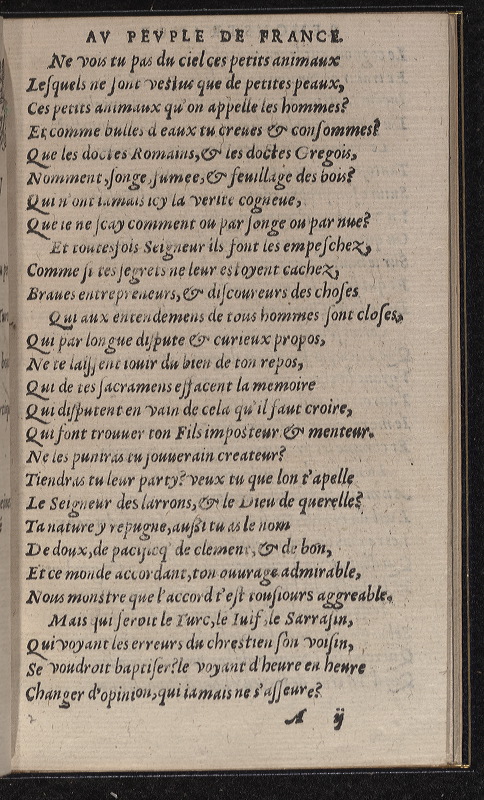 AV PEVPLE DE FRANCE.
Ne vois tu pas du ciel ces petits animaux
Lesquels ne sont vestus que de petites peaux,
Ces petits animaux qu'on appelle les hommes?
Et comme bulles d'eaux tu creues & consommes?
Que les doctes Romains, & les doctes Gregois,
Nomment, songe, fumee, & feuillage des bois?
Qui n'ont iamais icy la verite cogneue,
Que ie ne sçay comment ou par songe ou par nue?
Et toutesfois Seigneur ils font les empeschez,
Comme si tes segrets ne leur estoyent cachez,
Braues entrepreneurs, & discoureurs des choses
Qui aux entendemens de tous hommes sont closes,
Qui par longue dispute & curieux propos,
Ne te laissent iouir du bien de ton repos,
Qui de tes sacramens effacent la memoire
Qui disputent en vain de cela qu'il faut croire,
Qui font trouuer ton Fils imposteur & menteur.
Ne les puniras tu souuerain createur?
Tiendras tu leur party? veux tu que lon t'apelle
Le Seigneur des larrons, & le Dieu de querelle?
Ta nature y repugne, aussi tu as le nom
De doux, de pacificq' de clement, & de bon,
Et ce monde accordant, ton ouurage admirable,
Nous monstre que l'accord t'est tousiours aggreable.
Mais qui seroit le Turc, le Iuif, le Sarrasin,
Qui voyant les erreurs du chrestien son voisin,
Se voudroit baptiser? le voyant d'heure en heure
Changer d'opinion, qui iamais ne s'asseure?
A ij